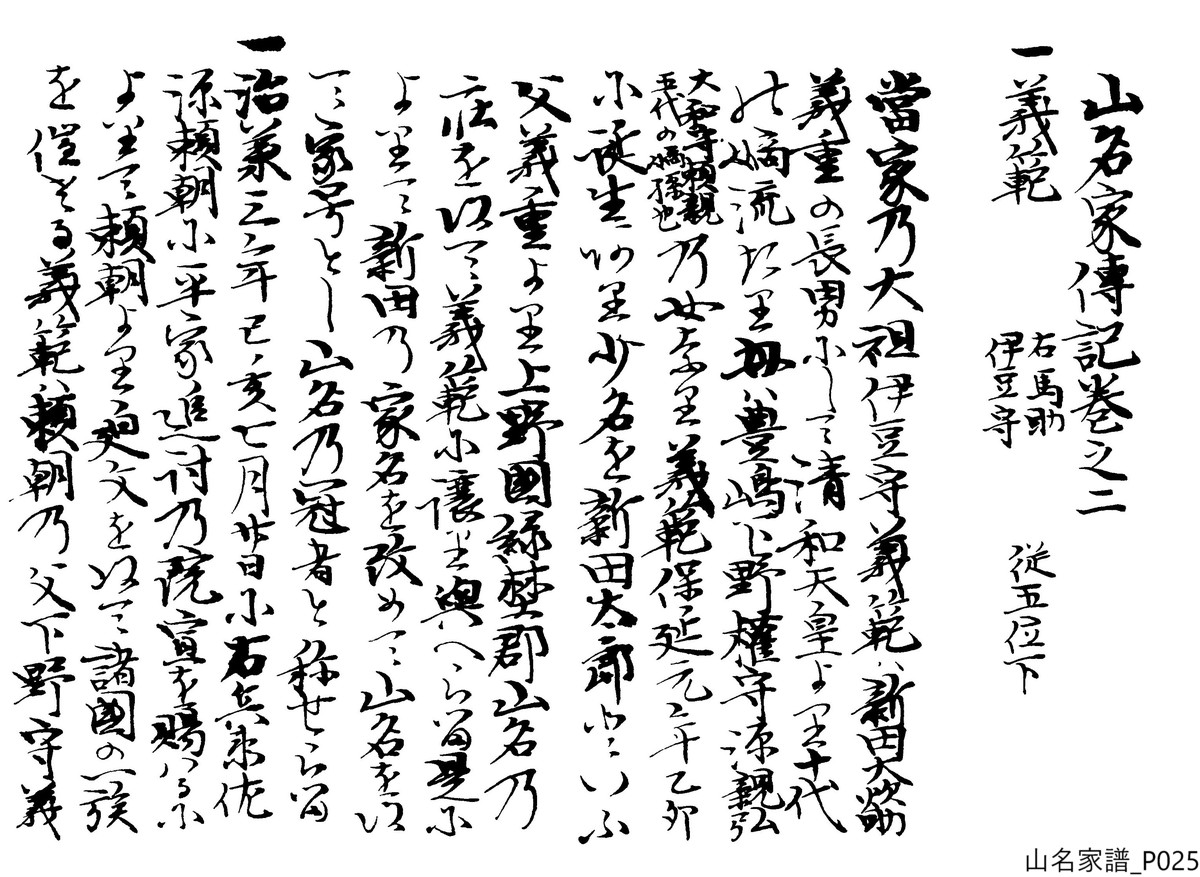 山名家傳記巻之二
一義範 右馬助 伊豆守 従五位下
當家乃大祖伊豆守義範ハ新田大炊助
義重の長男にして清和天皇より十代
の嫡流たり母ハ豊嶋下野権守源親弘
大和守頼親五代の嫡孫也乃女なり義範保延元年乙卯
に誕生あり少名を新田太郎といふ
父義重より上野國緑埜郡山名乃
庄を以て義範に譲り與へらる是に
よりて新田乃家名を改めて山名を以
て家号とし山名乃冠者と称せらる
一治承三年己亥七月廿日に右兵衛佐
源頼朝に平家追討乃院宣を賜ハるに
よりて頼朝より廻文を以て諸國の一族
を催さる義範ハ頼朝乃父下野守義
山名家譜_P025